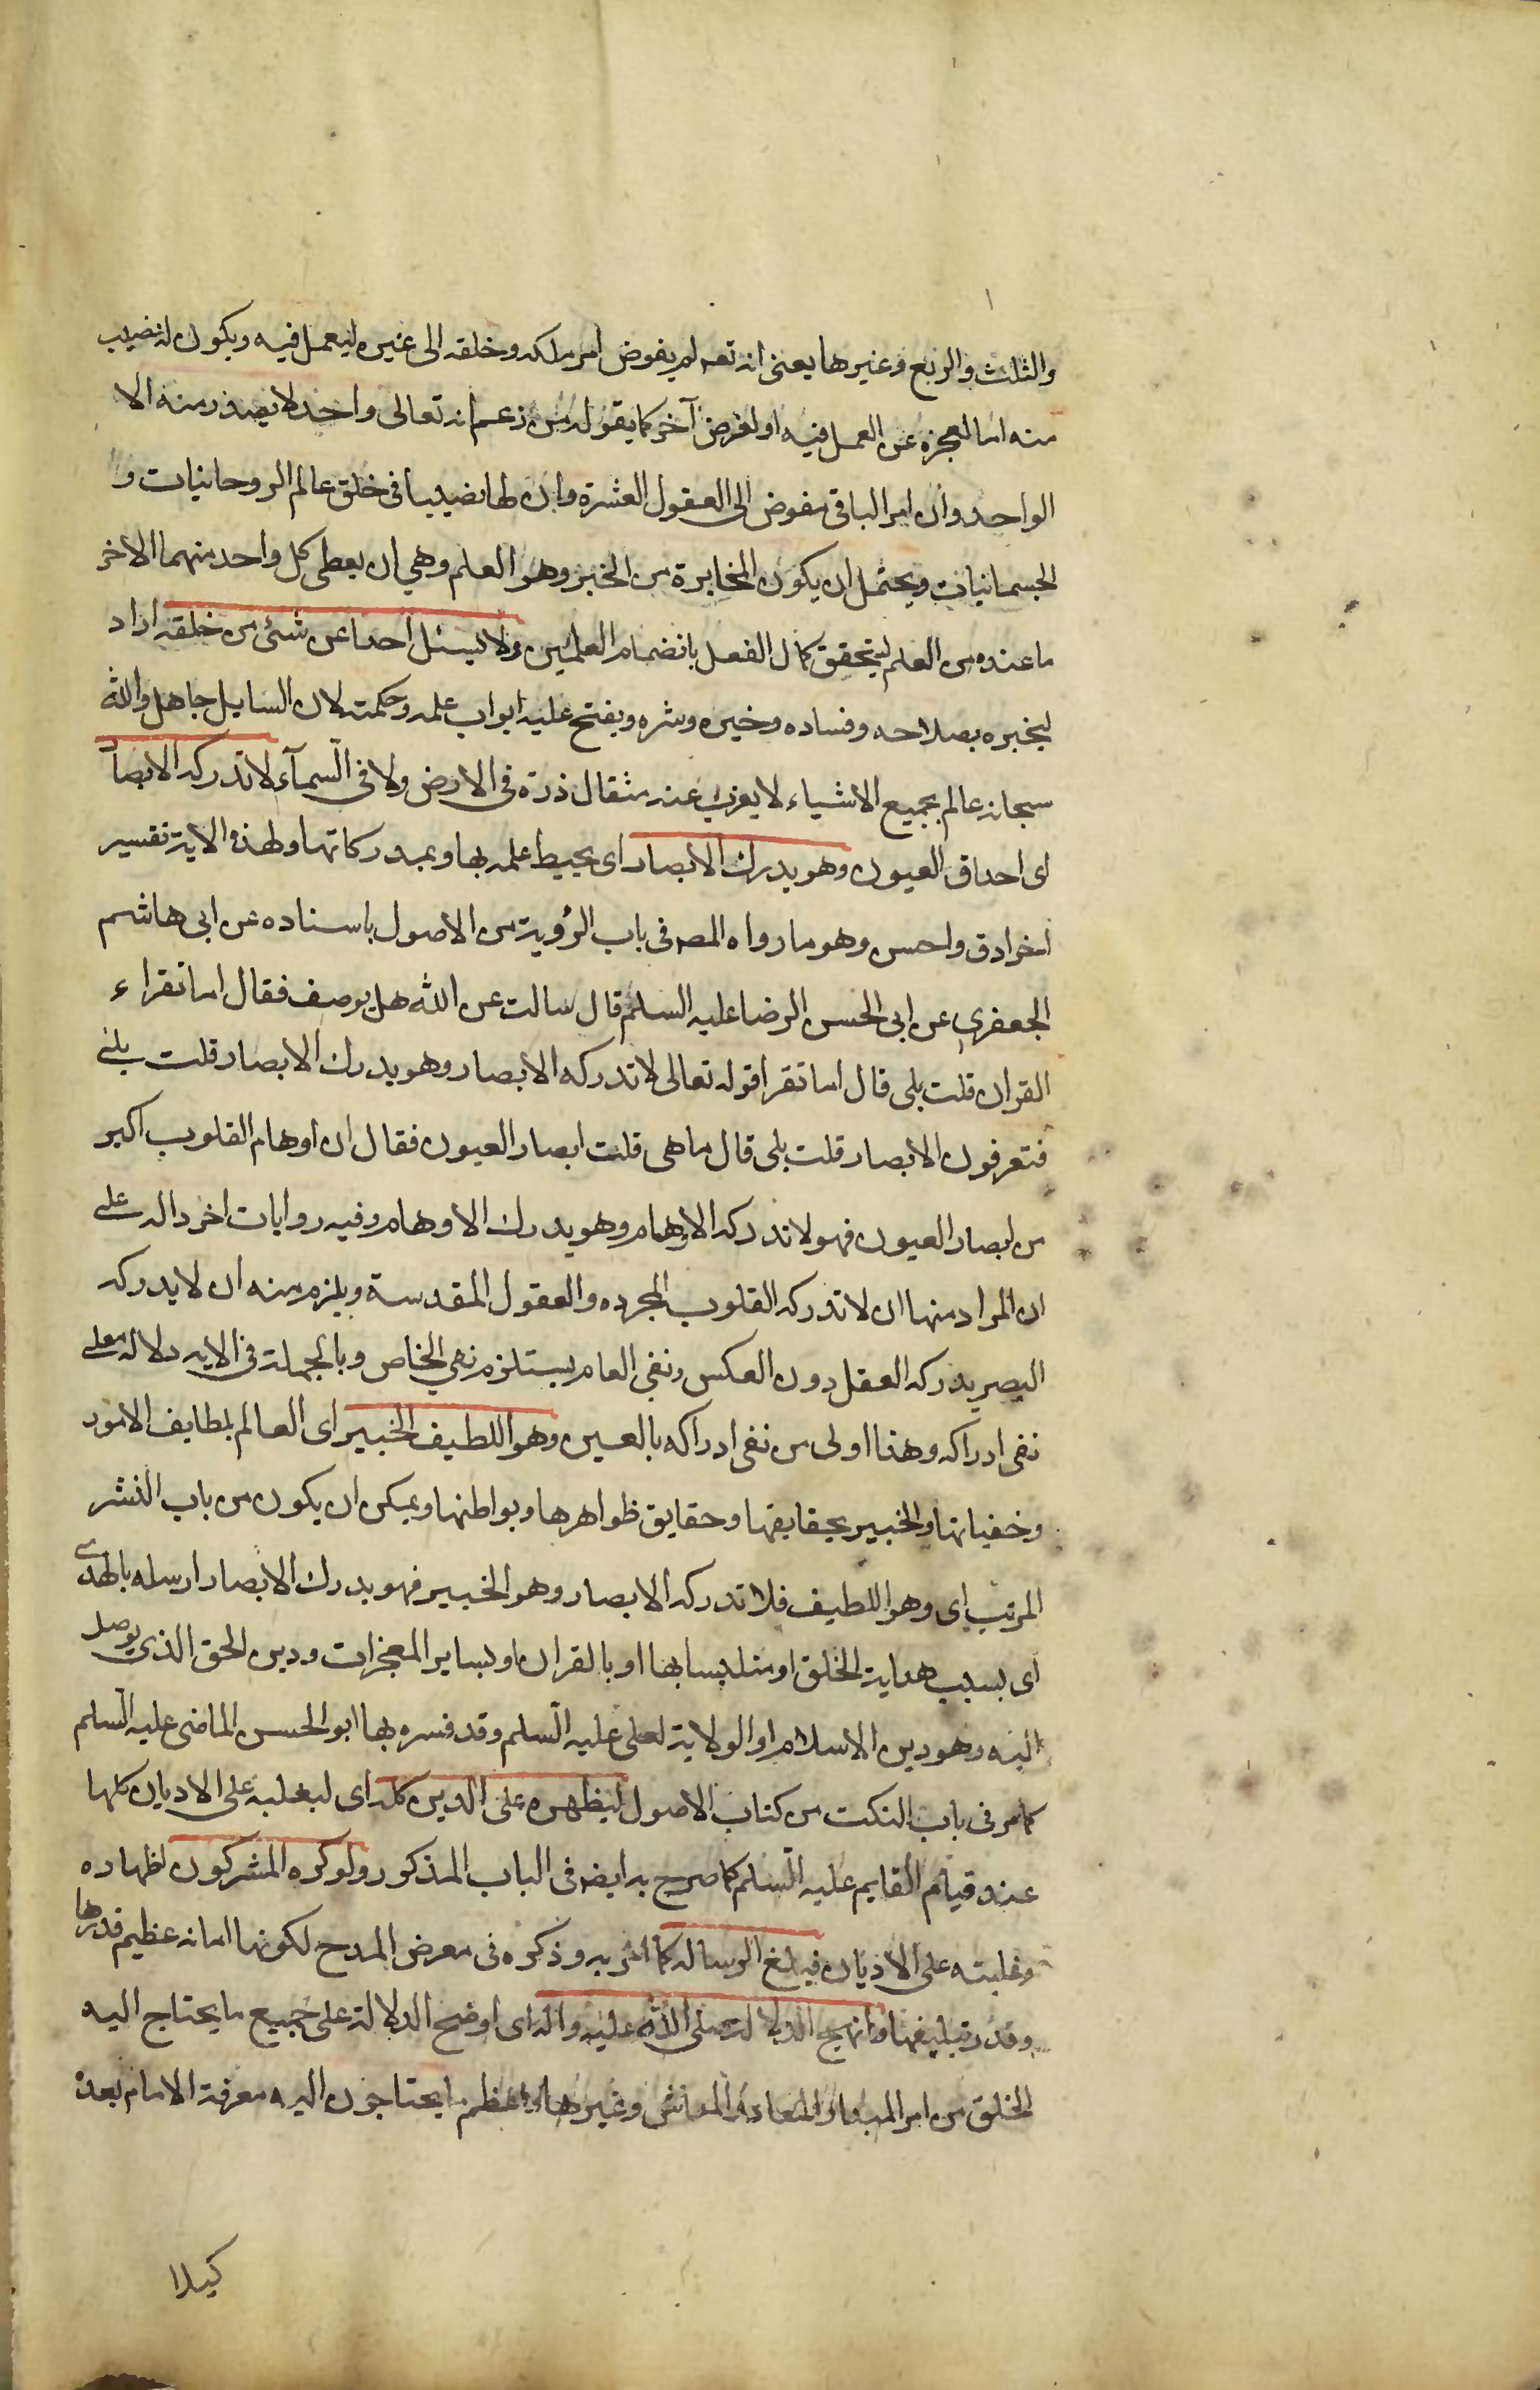 والثلث والربع وغيرها يعنى انه تعه لم يفوض امر ملكه وخلقه الى غيره ليعمل فيه ويكون له نصيب
منه اما لعجزه عن العمل فيه او لغرض آخر كما يقوله من زعم انه تعالى واحد لا يصدر منه الا
الواحد وان امر الباقى مفوض الى العقول العشرة وان لها نصيبا فى خلق عالم الروحانيات و
الجسمانيات ويحتمل ان يكون المخابرة من الخبر وهو العلم وهي ان يعطى كل واحد منهما الاخر
ما عنده من العلم ليتحقق كمال الفعل بانضمام العلمين ولا يسئل احدا عن شئ من خلقه اراد
ليخبره بصلاحه وفساده وخيره وشره ويفتح عليه ابواب علمه وحكمته لان السايل جاهل والله
سبحانه عالم بجميع الاشياء لا يعزب عنه مثقال ذرة فى الارض ولا فى السمآء لا تدركه الابصار
اى احداق العيون وهو يدرك الابصار اى يحيط علمه بها وبمدركاتها ولهذه الاية تفسير
اخر ادق واحسن وهو ما رواه المصه فى باب الرؤية من الاصول باسناده عن ابى هاشم
الجعفري عن ابى الحسن الرضا عليه السلم قال سالت عن الله هل يوصف فقال اما تقراء
القران قلت بلى قال اما تقرا قوله تعالى لا تدركه الابصار وهو يدرك الابصار قلت بلى
فتعرفون الابصار قلت بلى قال ما هى قلت ابصار العيون فقال ان اوهام القلوب اكبر
من ابصار العيون فهو لا تدركه الاوهام وهو يدرك الاوهام وفيه روايات اخر دالة على
ان المراد منها ان لا تدركه القلوب المجرده والعقول المقدسة ويلزم منه ان لا يدركه
البصر يدركه العقل دون العكس ونفى العام يستلزم نفي الخاص وبالجملة فى الايه دلاله على
نفى ادراكه وهذا اولى من نفى ادراكه بالعين وهو اللطيف الخبير اى العالم بلطايف الامور
وخفياتها والخبير بحقايقها وحقايق ظواهرها وبواطنها ويمكن ان يكون من باب النشر
المرتب اى وهو اللطيف فلا تدركه الابصار وهو الخبير فهو يدرك الابصار ارسله بالهدى
اى بسبب هداية الخلق او متلبسا بها او بالقران او بساير المعجزات ودين الحق الذى يوصل
اليه وهو دين الاسلام او الولاية لعلى عليه السلم وقد فسره بها ابو الحسن الماضى عليه السلم
كما مر فى باب النكت من كتاب الاصول ليظهره على الدين كله اى ليغلبه على الاديان كلها
عند قيام القايم عليه السلم كما صرح به ايضه فى الباب المذكور ولو كره المشركون اظهاره
وغلبته على الاديان فبلغ الرسالة كما امر به وذكره فى معرض المدح لكونها امانه عظيم قدرها
وقدر تبليغها وانهج الدلالة صلى الله عليه واله اى اوضح الدلالة على جميع ما يحتاج اليه
الخلق من امر المبدا والمعاد والمعاش وغيرها واعظم ما يحتاجون اليه معرفة الامام بعده
كيلا